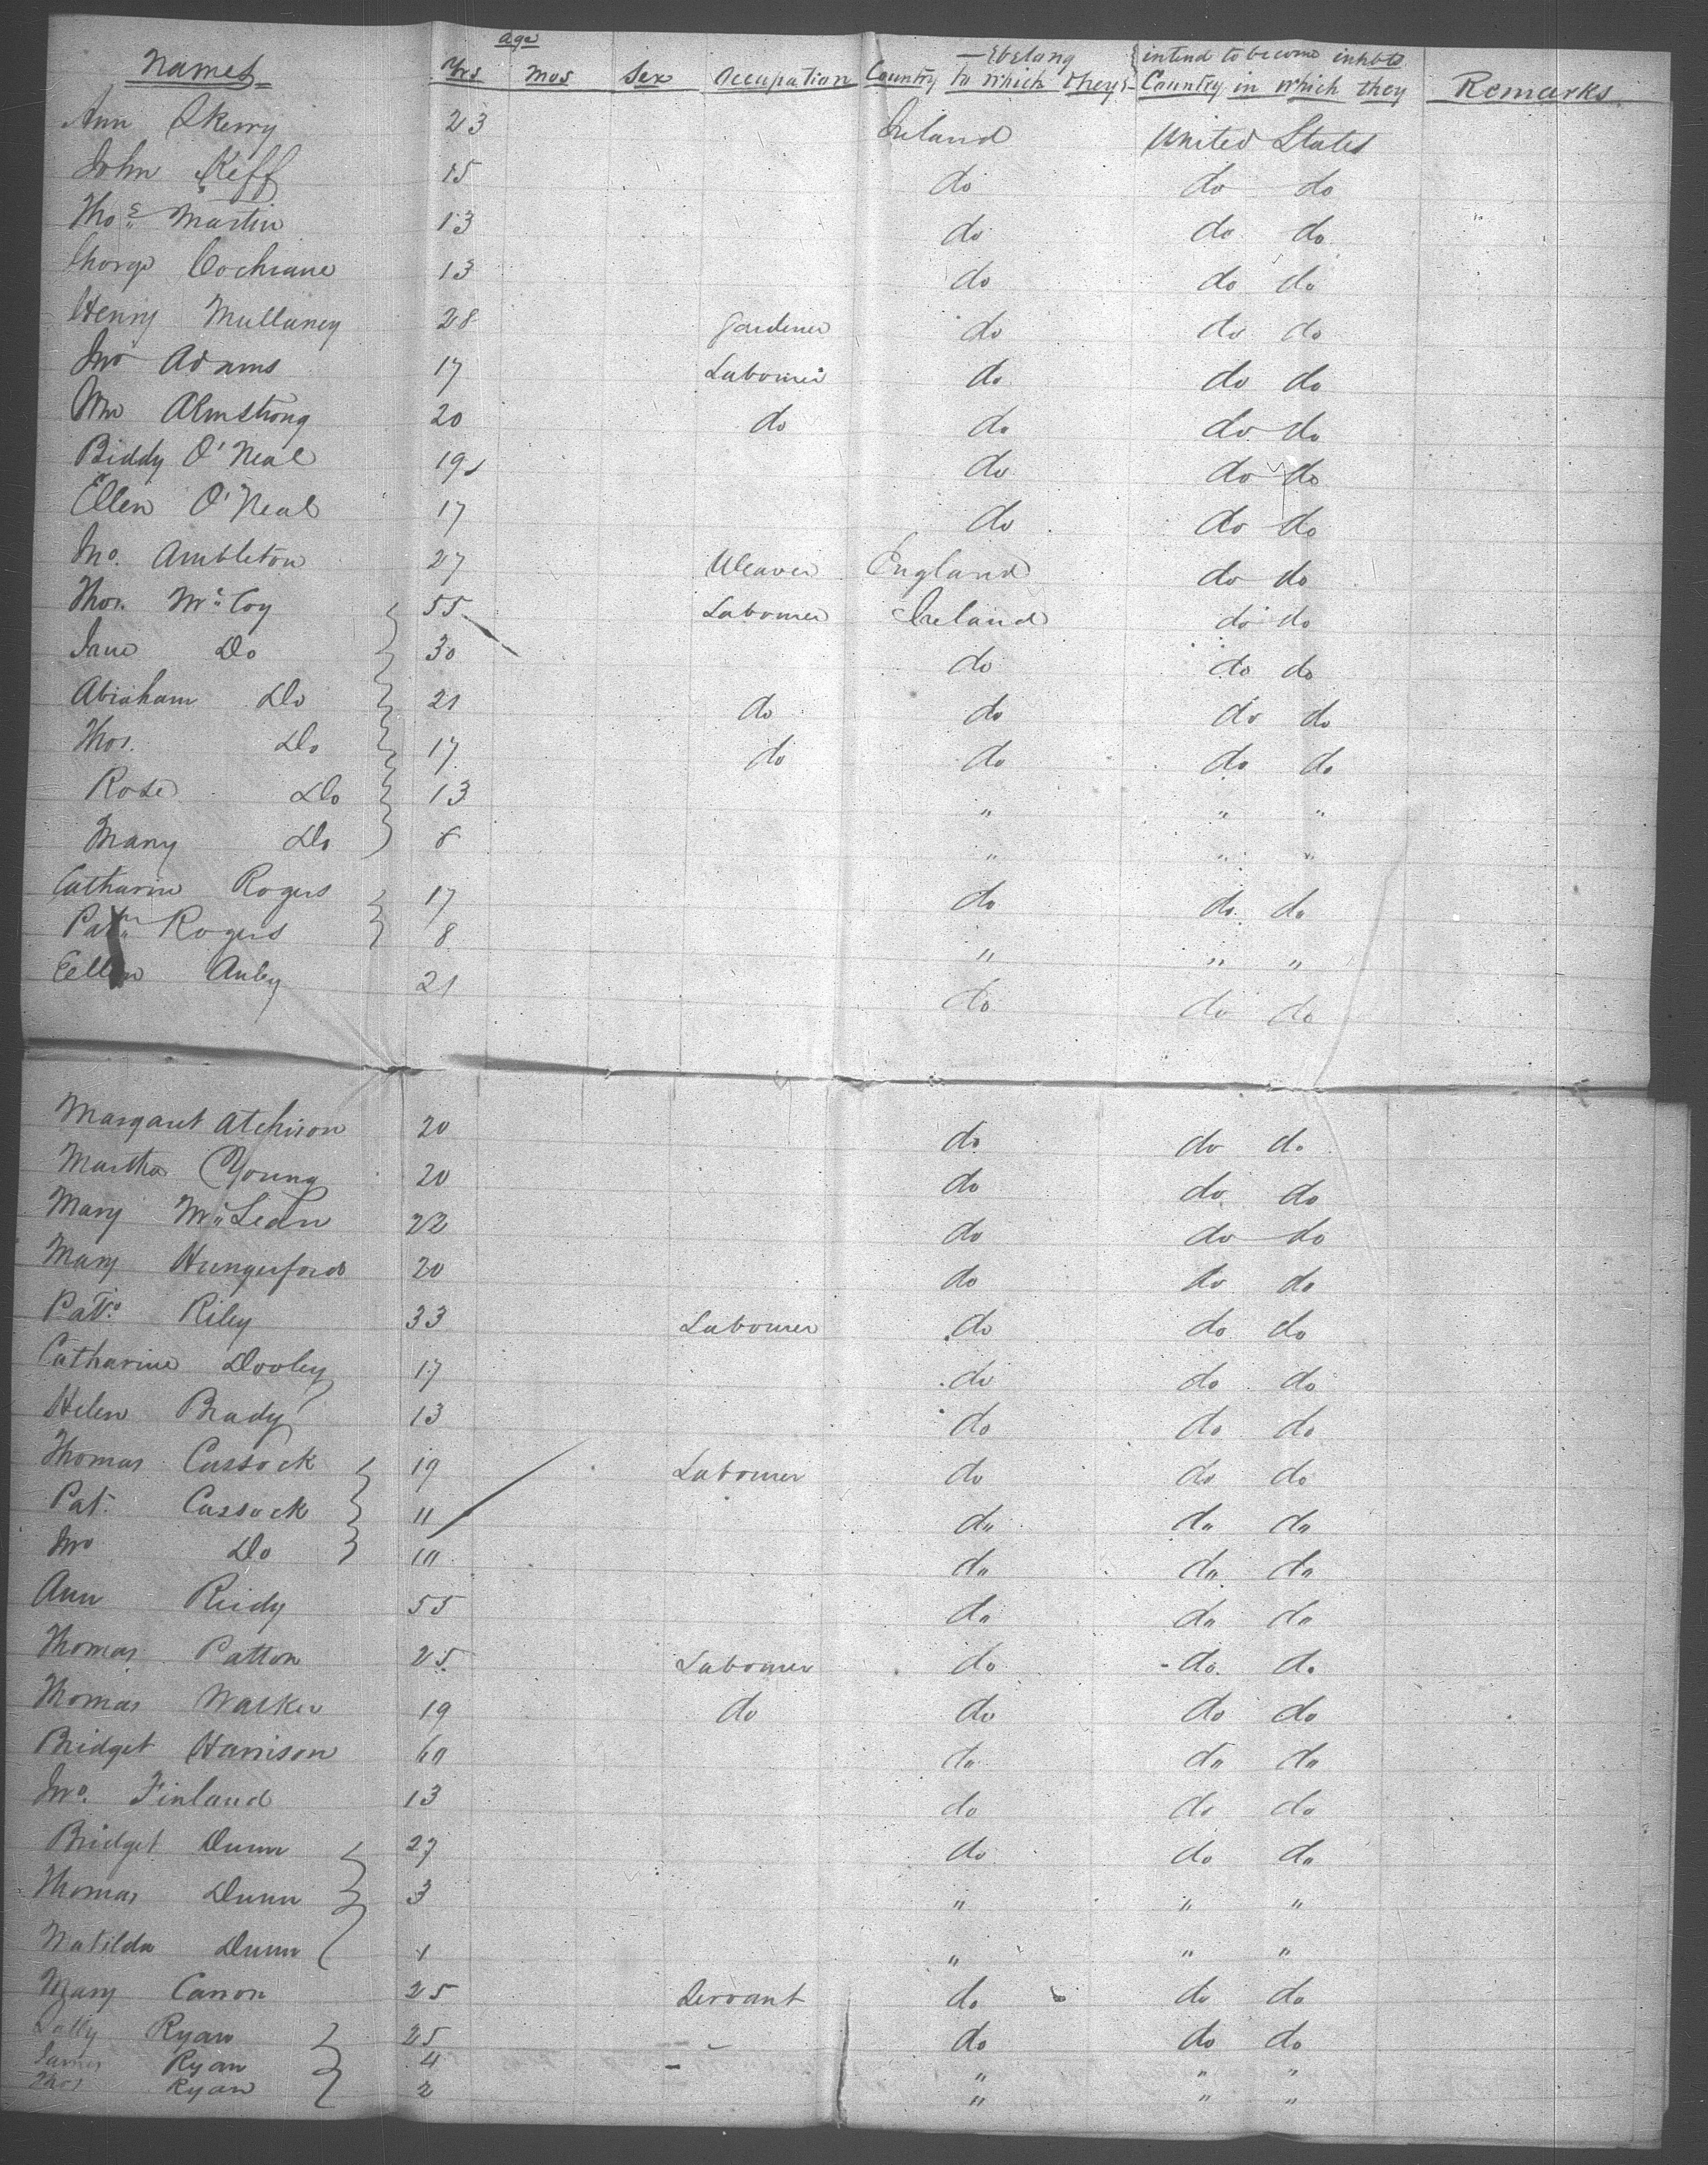 Age
Names Yrs Mos Sex Occupation Country to which they belong Country in which they intend to become inhbts Remarks
Ann Skerry 23 Ireland United States
John Keff 15 do do do
Thos Martin 13 do do do
George Cochrane 13 do do do
Henry Mullaney 28 Gardener do do do
Jno Adams 17 Labourer do do do
Wm Armstrong 20 do do do do
Biddy O'Neal 19 do do do
Ellen O'Neal 17 do do do
Jno. Ambleton 27 Weaver England do do
Thos. McCoy 55 Labourer Ireland do do
Jane Do 30 do do do
Abraham Do 21 do do do do
Thos. Do 17 do do do do
Rose Do 13 " " "
Mary Do 8 " " "
Catharin Rogers 17 do do do
Rogers 8 " " "
Ellen Anley 21 do do do
Margaret Atchison 20 do do do
Martha Young 20 do do do
Mary McLean 22 do do do
Mary Hungerford 20 do do do
Patk. Riley 33 Labourer do do do
Catharine Dooley 17 do do do
Helen Brady 13 do do do
Thomas Cussock 19 Labourer do do do
Pat. Cussock 11 do do do
Jno Do 10 do do do
Ann Reidy 55 do do do
Thomas Patton 25 Labourer do do do
Thomas Walker 19 do do do do
Bridget Harrison 60 do do do
Jno. Finland 13 do do do
Bridget Dunn 27 do do do
Thomas Dunn 3 " " "
Matilda Dunn 1 " " "
Mary Canon 25 Servant do do do
Ryan 25 do do do
James Ryan 4 " " "
Thos Ryan 2 " " "